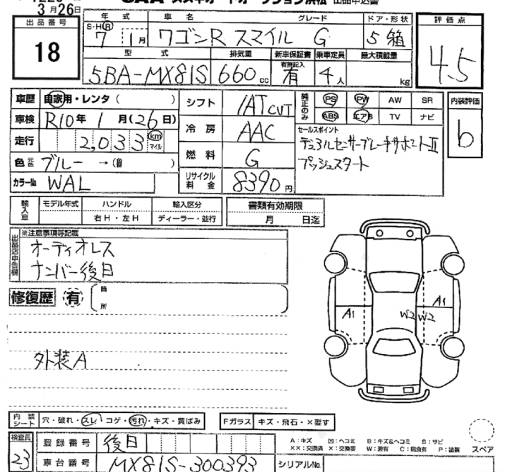 3月26日
出品番号 年式 車名 グレード ドア・形状 評価点
18
S・H・R 7 1月 ワゴンR スマイル G 5 箱
4.5
型式 排気量 新車保証書 乗車定員 最大積載量
5BA-MX81S 660cc 有 4人 kg
車歴 自家用・レンタ( )
シフト IAT CVT
純正のみ PS PW AW SR
ABS エアB TV ナビ
内装評価 b
車検 R10年 1月(26日)
冷房 AAC
セールスポイント
走行 2,033 km マイル
デュアルセンサーブレーキサポートⅡ
色 ブルー →( )
燃料 G
プッシュスタート
カラーNo WAL
リサイクル料金 8390円
輸入車 モデル年式 ハンドル 輸入区分 書類有効期限
右H・左H ディーラー・並行 月 日迄
※注意事項等記載
オーディオレス
ナンバー後日
修復歴 有 箇所
A1 A1 W2 W2
外装A
内装シート 穴・破れ・スレ・コゲ・汚れ・キズ・黄ばみ Fガラス キズ・飛石・X要す
検査員 23 登録番号 後日
A：キズ U：ヘコミ B：キズ&ヘコミ S：サビ
XX：交換済 X：交換要 W：波有 C：腐食有 P：塗装 スペア
車台番号 MX81S-300393 シリアルNo.